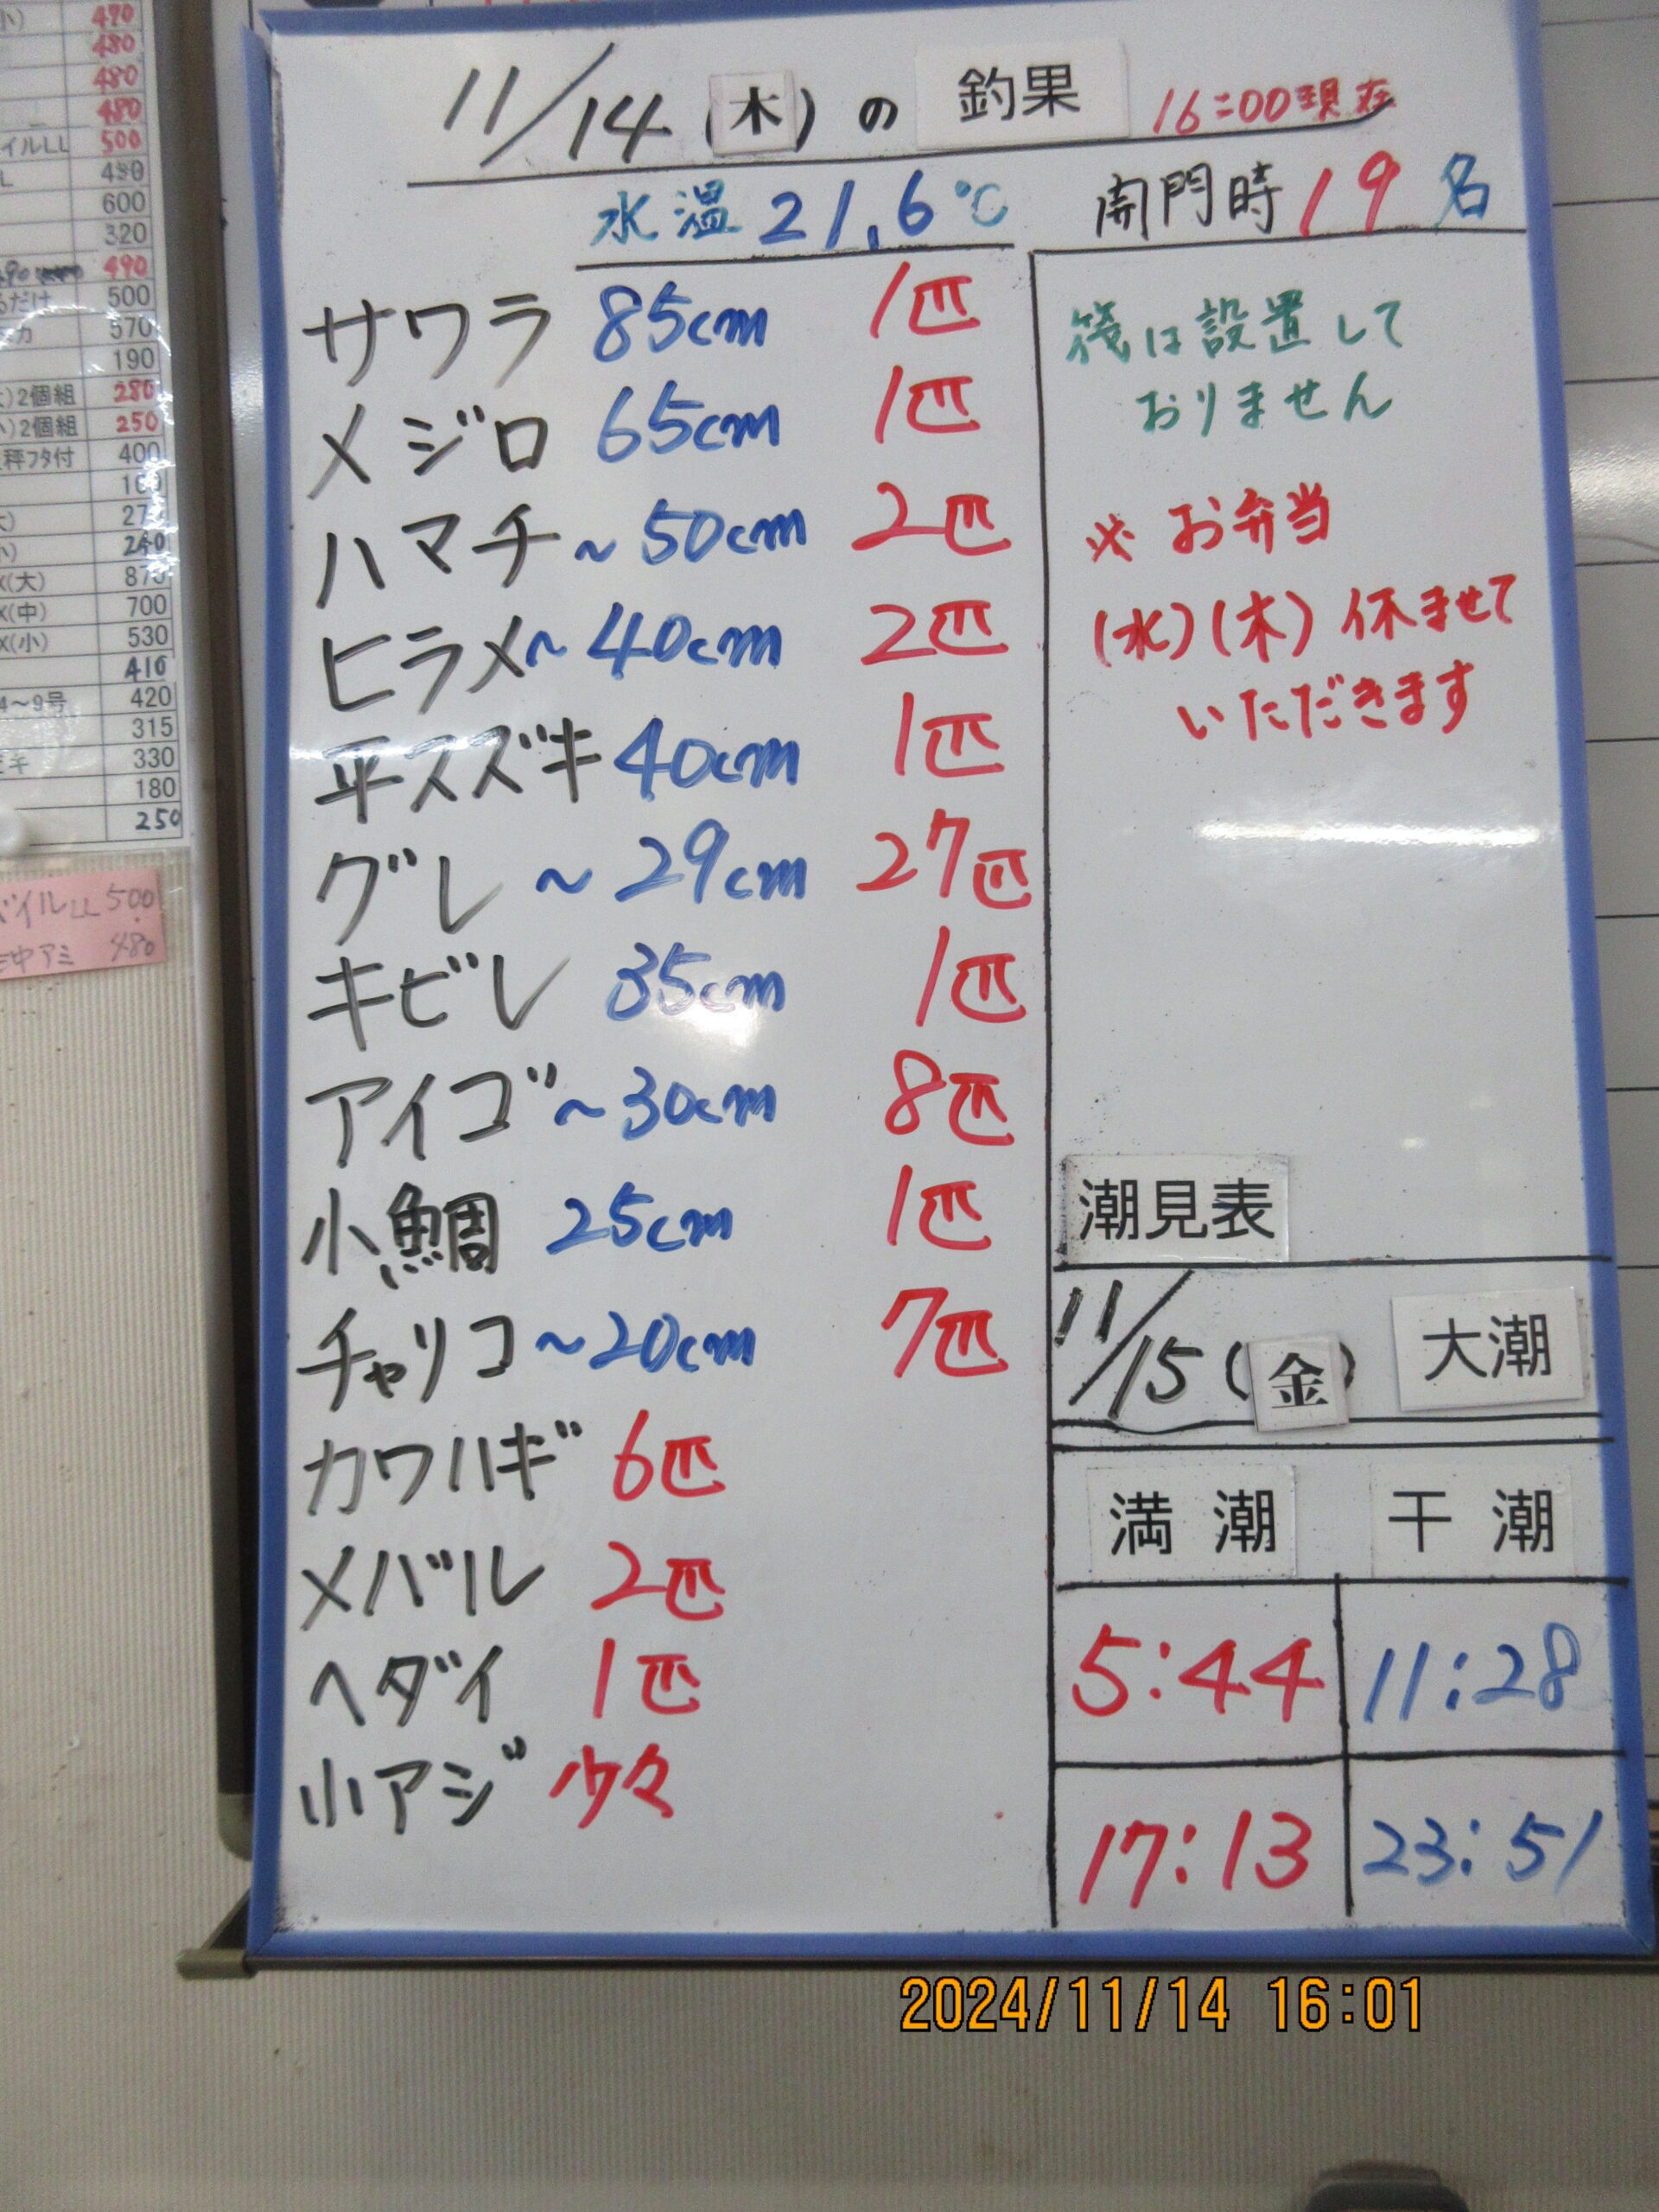 11/14(木)の 釣果 16:00現在
水温 21.6℃ 開門時 19名
サワラ 85cm 1匹
メジロ 65cm 1匹
ハマチ ~50cm 2匹
ヒラメ ~40cm 2匹
平スズキ 40cm 1匹
グレ ~29cm 27匹
キビレ 35cm 1匹
アイゴ ~30cm 8匹
小鯛 25cm 1匹
チャリコ ~20cm 7匹
カワハギ 6匹
メバル 2匹
ヘダイ 1匹
小アジ 少々
筏は設置して
おりません
※ お弁当
(水)(木) 休ませて
いただきます
潮見表
11/15(金) 大潮
満潮 干潮
5:44 11:28
17:13 23:51
2024/11/14 16:01
490
480
480
480
イルLL 500
490
600
320
490
るだけ 500
570
190
)2個組 280
)2個組 250
秤フタ付 400
240
(大)
(中) 700
(小) 530
410
4～9号 420
315
330
180
250
イルLL 500
中アミ 480